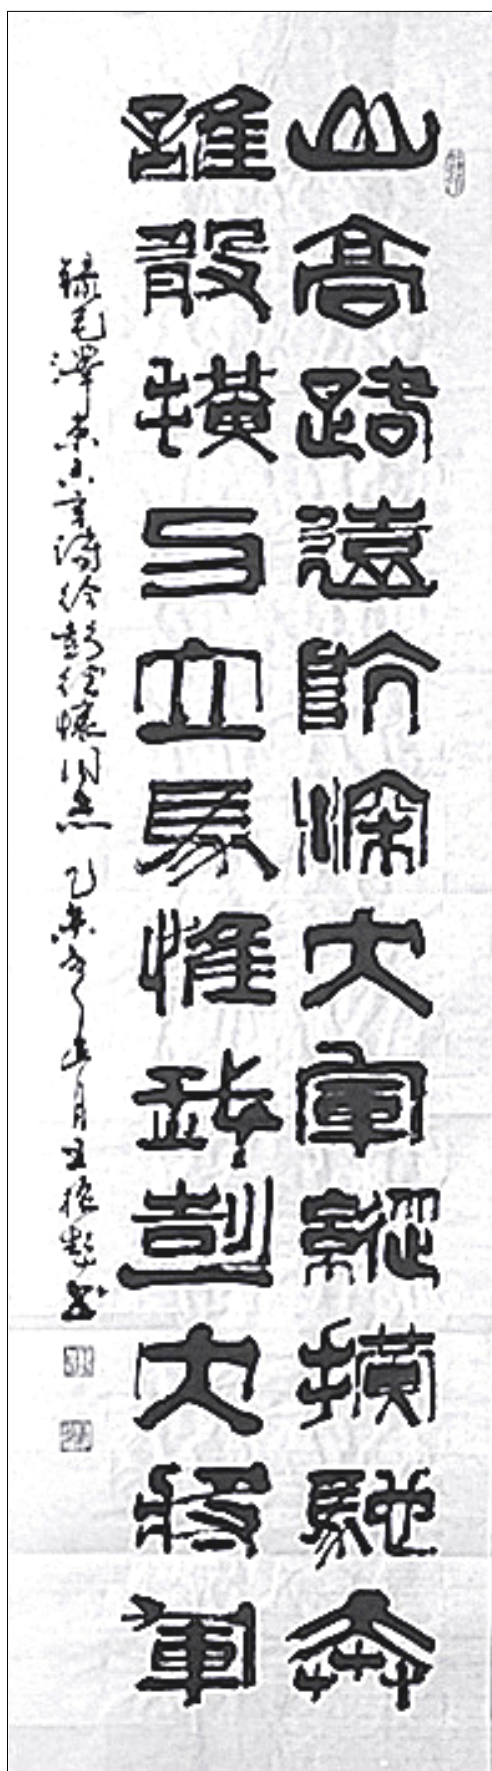 山高路遠坑深大軍縱横馳奔
誰敢横刀立馬惟我彭大将軍
録毛澤东六言詩给彭德懷同志 乙未年正月王振书